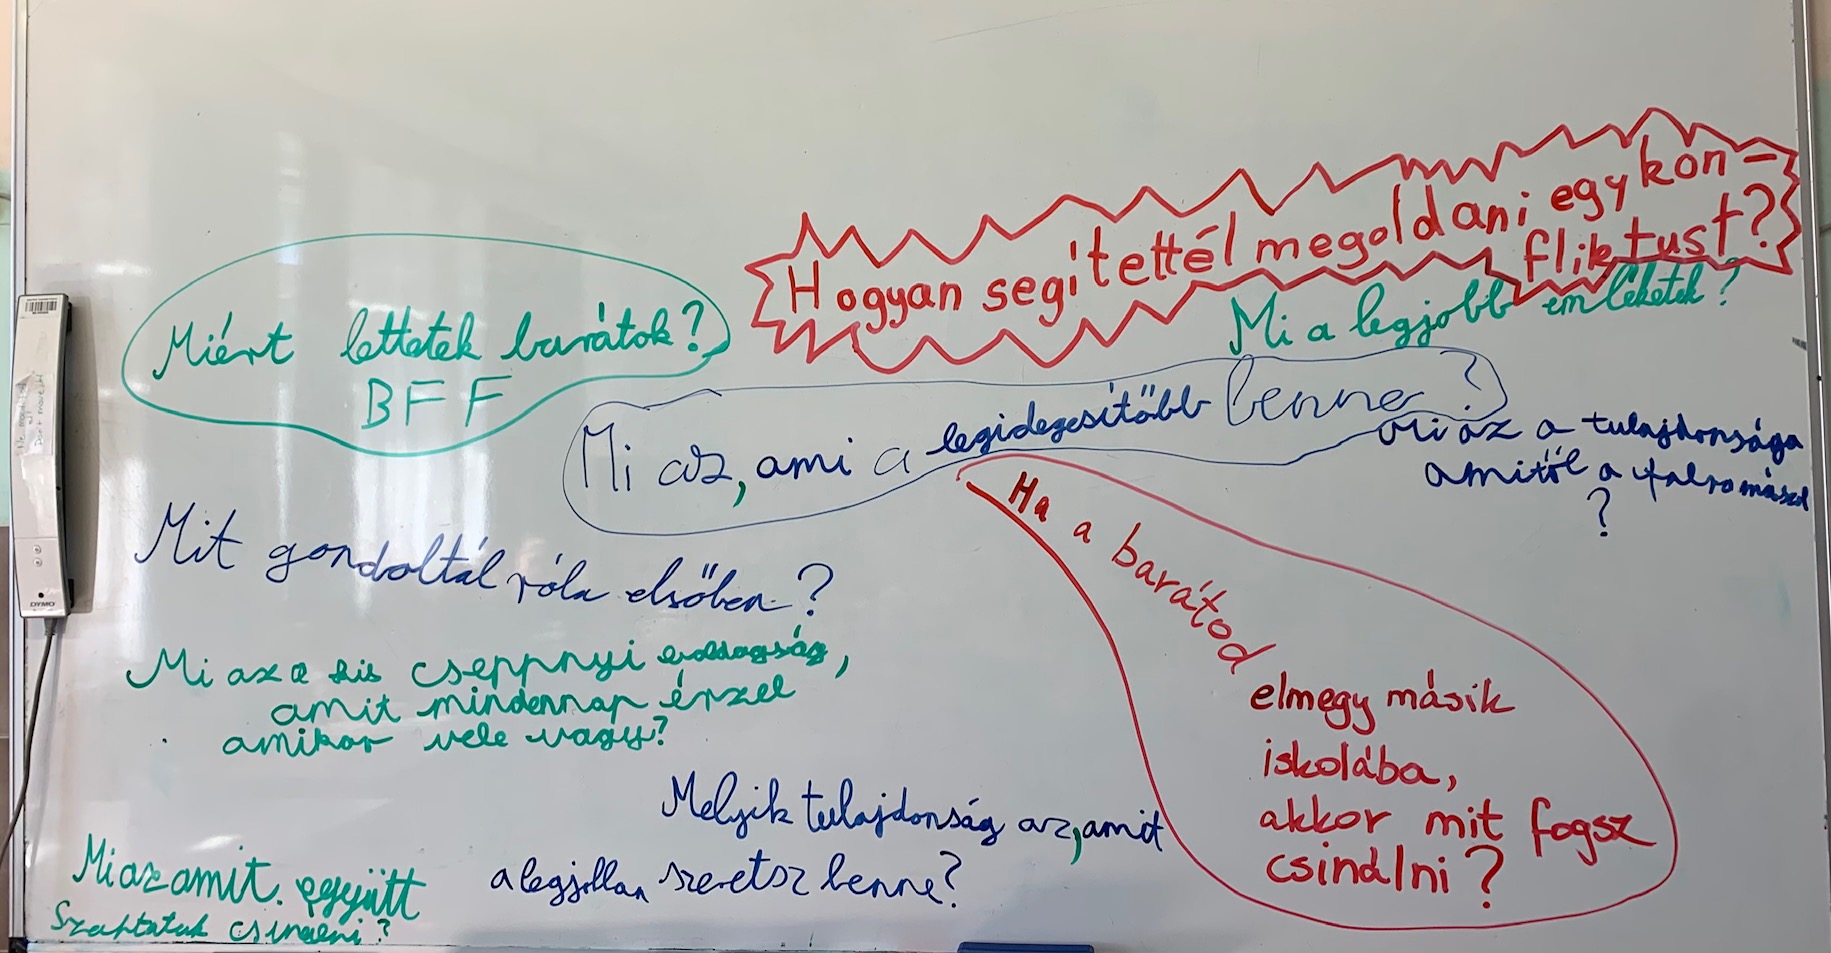 Hogyan segítettél megoldani egy kon-
fliktust?
Miért lettetek barátok?
BFF
Mi a legjobb emléketek?
Mi az, ami a legidegesítőbb benne?
Mi az a tulajdonsága
amitől a falra mászol
?
Mit gondoltál róla elsőben?
Ha a barátod
elmegy másik
iskolába,
akkor mit fogsz
csinálni?
Mi az a kis cseppnyi boldogság,
amit mindennap érzel
amikor vele vagy?
Melyik tulajdonság az, amit
a legjobban szeretsz benne?
Mi az amit együtt
Szoktatok csinálni?
DYMO